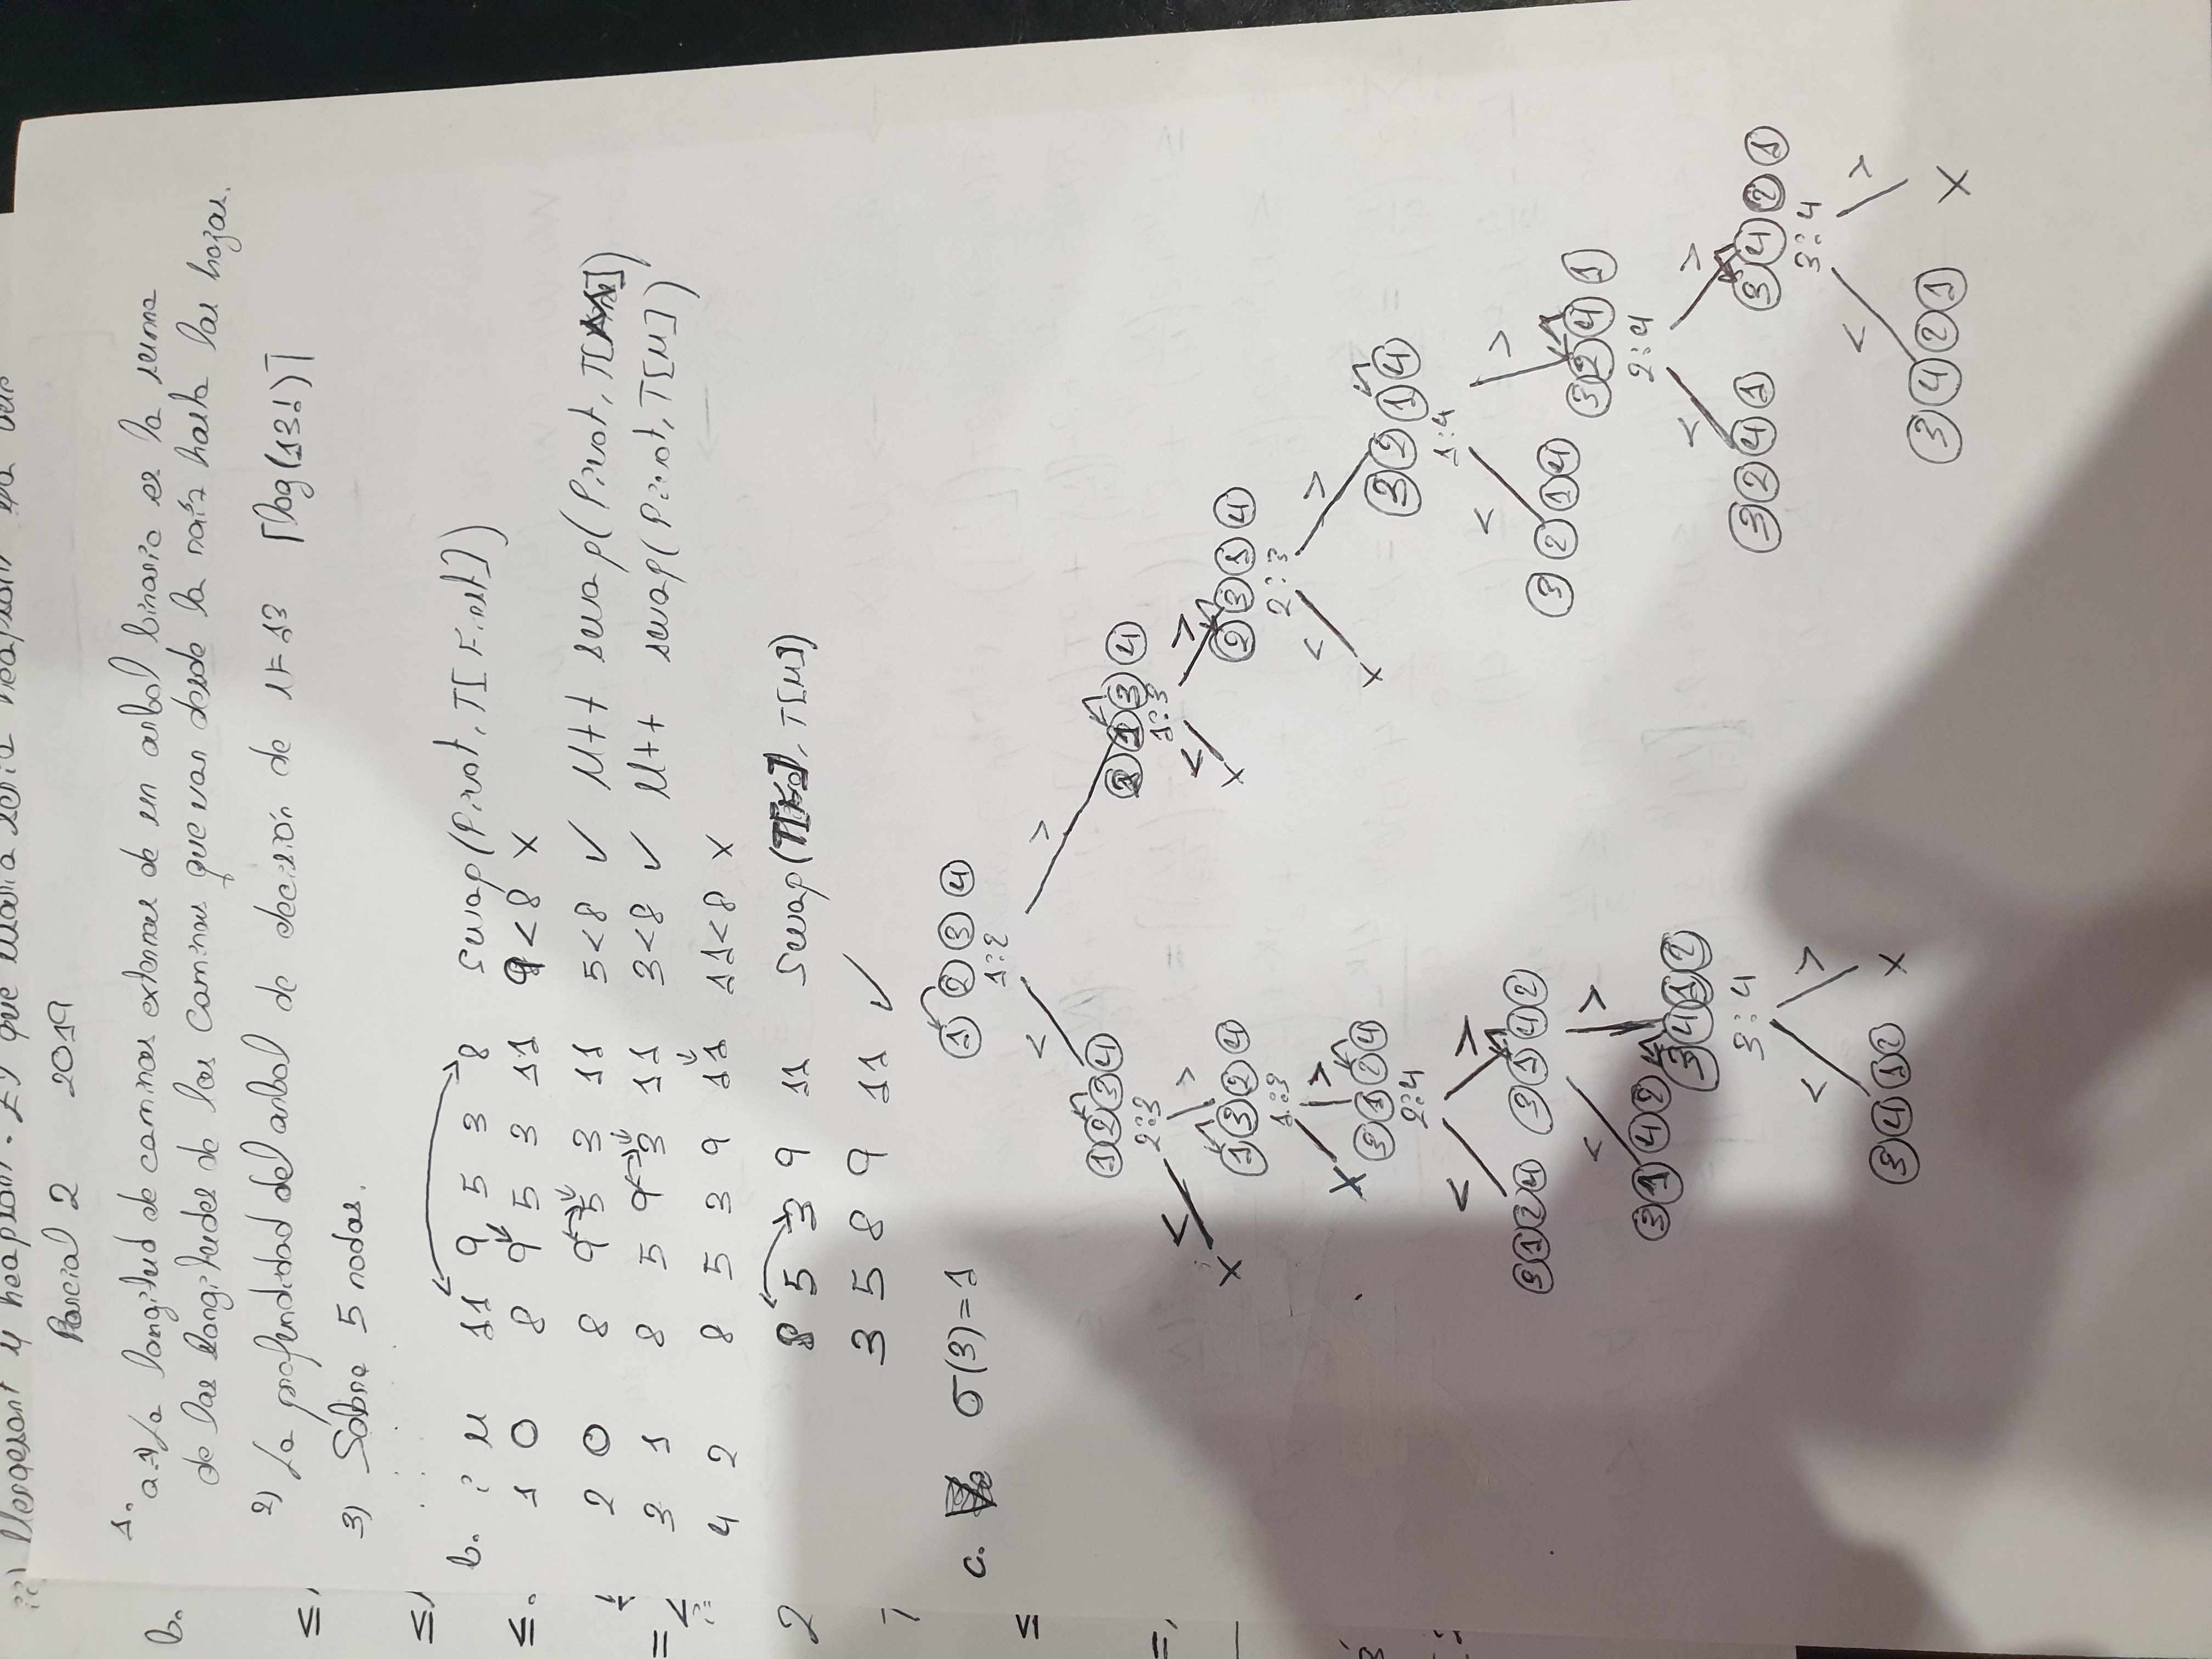 Mergesort y heapsort. El que usaría sería heapsort ya que
Parcial 2 2019
1.
a. 1) La longitud de caminos externos de un arbol binario es la suma
de las longitudes de los caminos que van desde la raíz hasta las hojas.
2) La profundidad del arbol de decisión de N=13 ⌈log(13!)⌉
3) Sobre 5 nodos.
b. i M 11 9 5 3 8 swap(Pivot, T[First])
1 0 8 9 5 3 11 9<8 ×
2 0 8 9 5 3 11 5<8 ✓ M++ swap(Pivot, T[
3 1 8 5 9 3 11 3<8 ✓ M++ swap(Pivot, T[M])
4 2 8 5 3 9 11 11<8 ×
8 5 3 9 11 Swap( , T[M])
3 5 8 9 11 ✓
c. σ(3)=1 1 2 3 4
1:2
< >
1 2 3 4 2 1 3 4
2:3 1:3
< > < >
× 1 3 2 4 × 2 3 1 4
1:3 2:3
< > < >
× 3 1 2 4 × 3 2 1 4
2:4 1:4
< > < >
3 1 2 4 3 1 4 2 3 2 1 4 3 2 4 1
< > 2:4
3 1 4 2 3 4 1 2 < >
3:4 3 2 4 1 3 4 2 1
< > 3:4
3 4 1 2 × < >
3 4 2 1 ×